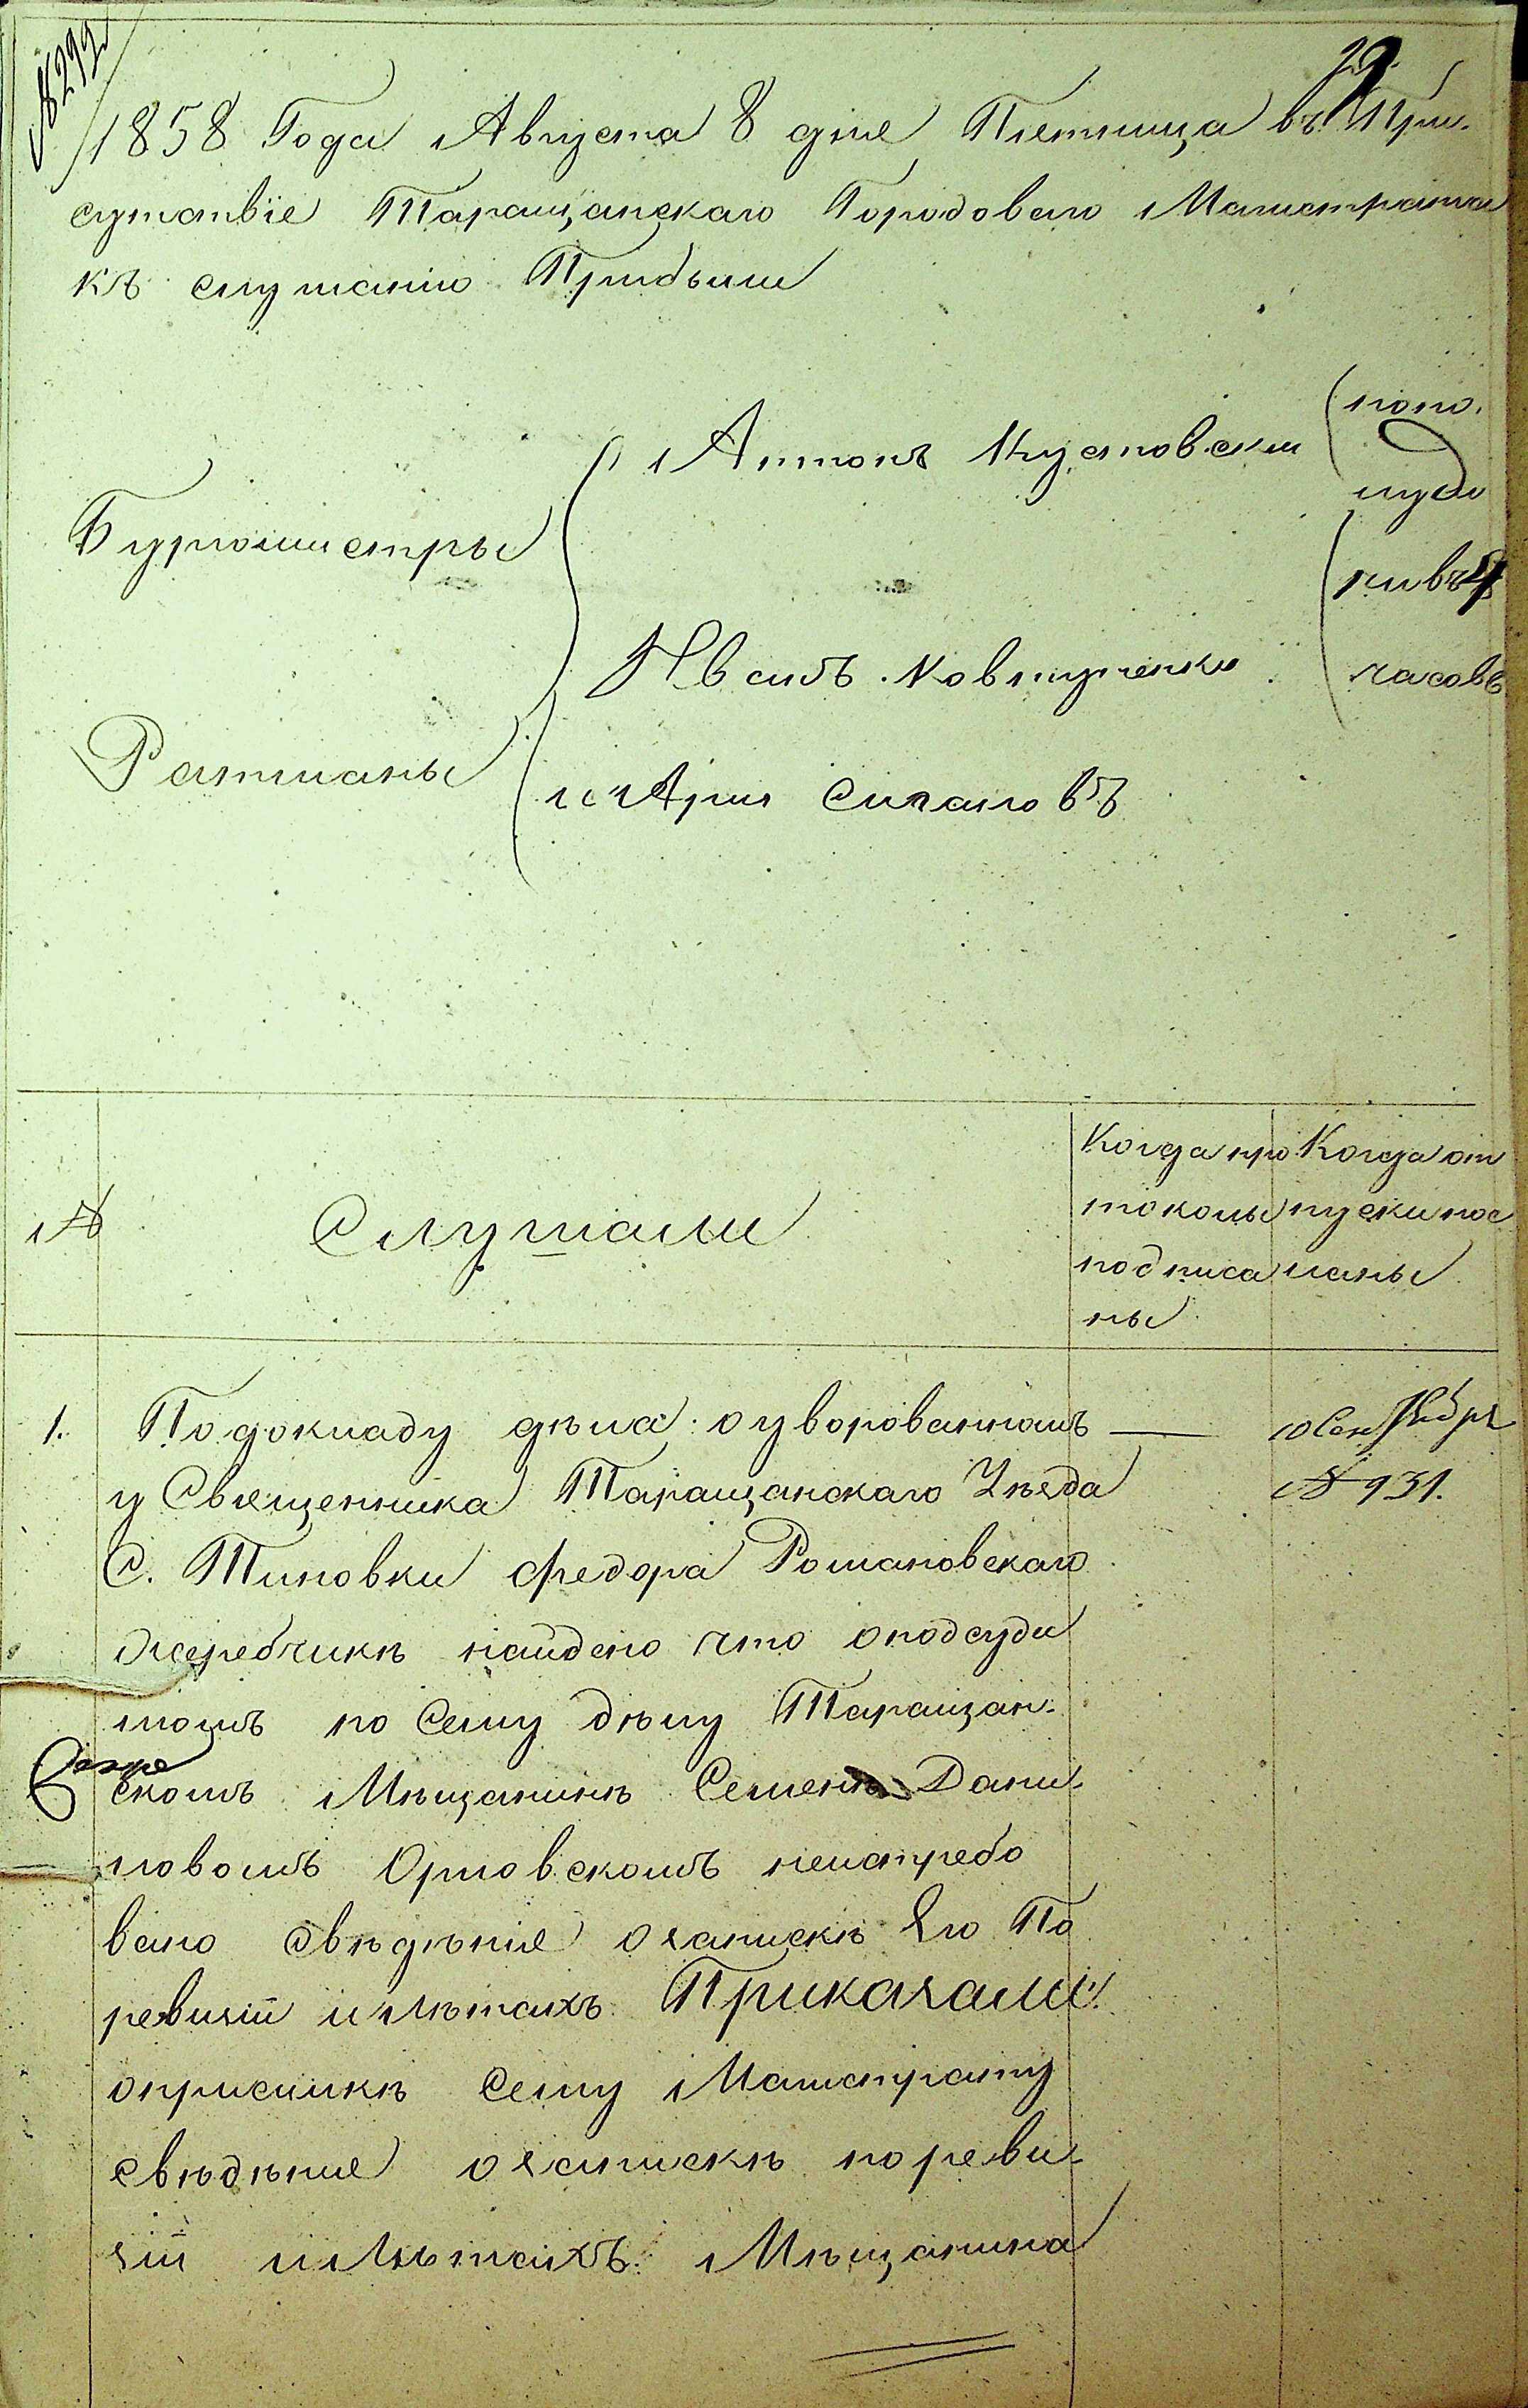 № 299
1858 Года Августа 8 дня Пятница въ При-
сутствіе Таращанскаго Городоваго Магистрата
къ слушанію Прибыли
Бургомистры
Антонъ Кусловскій
попо-
луд
ни въ
часовъ
Иванъ Ковтуненко
Ратманы
и Арія Сигаловъ
№
Слушали
Когда про
токолы
подписа
ны
Когда от
пуски пос
ланы
1. По докладу дѣла о уворованномъ
у Священника Таращанскаго Уѣзда
С. Тиновки Федора Романовскаго
жеребчикѣ найдено что о подсуди
момъ по сему дѣлу Таращан-
скомъ Мѣщанинѣ Семенѣ Дани-
ловомъ Орловскомъ неистребо
вано свѣдѣніе о запискѣ Его По
ревизіи и лѣтахъ Приказали
о присылкѣ сему Магистрату
свѣдѣніе о запискѣ по реви-
зіи и лѣтахъ Мѣщанина
10 Сентября
№ 931.